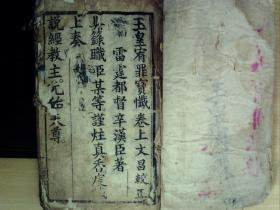 玉皇宥罪寶懺卷上文昌較正
雷霆都督辛漢臣著
具錄職臣某等謹炷真香虔
上奏
說經教主元始天尊